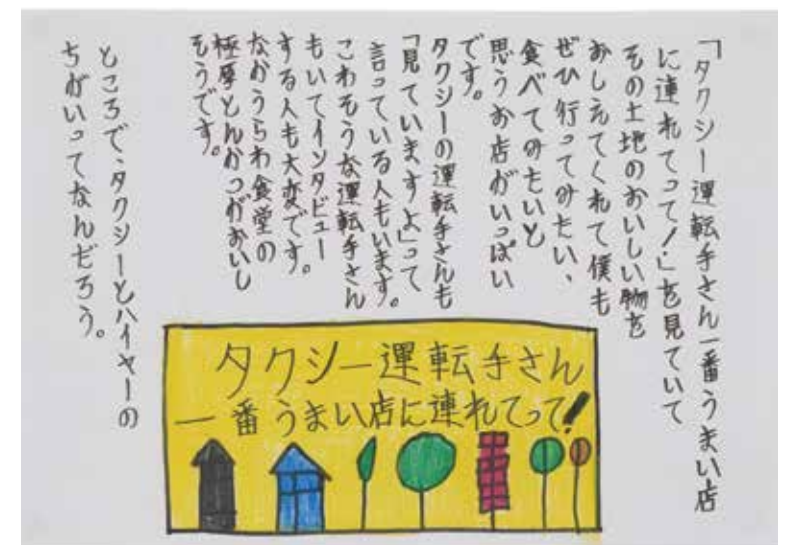 「タクシー運転手さん一番うまい店
に連れてって！」を見ていて
その土地のおいしい物を
おしえてくれて僕も
ぜひ行ってみたい、
食べてみたいと
思うお店がいっぱい
です。
タクシーの運転手さんも
「見ていますよ」って
言っている人もいます。
こわそうな運転手さん
もいてインタビュー
する人も大変です。
なかうらわ食堂の
極厚とんかつがおいし
そうです。
ところで、タクシーとハイヤーの
ちがいってなんだろう。
タクシー運転手さん
一番うまい店に連れてって！